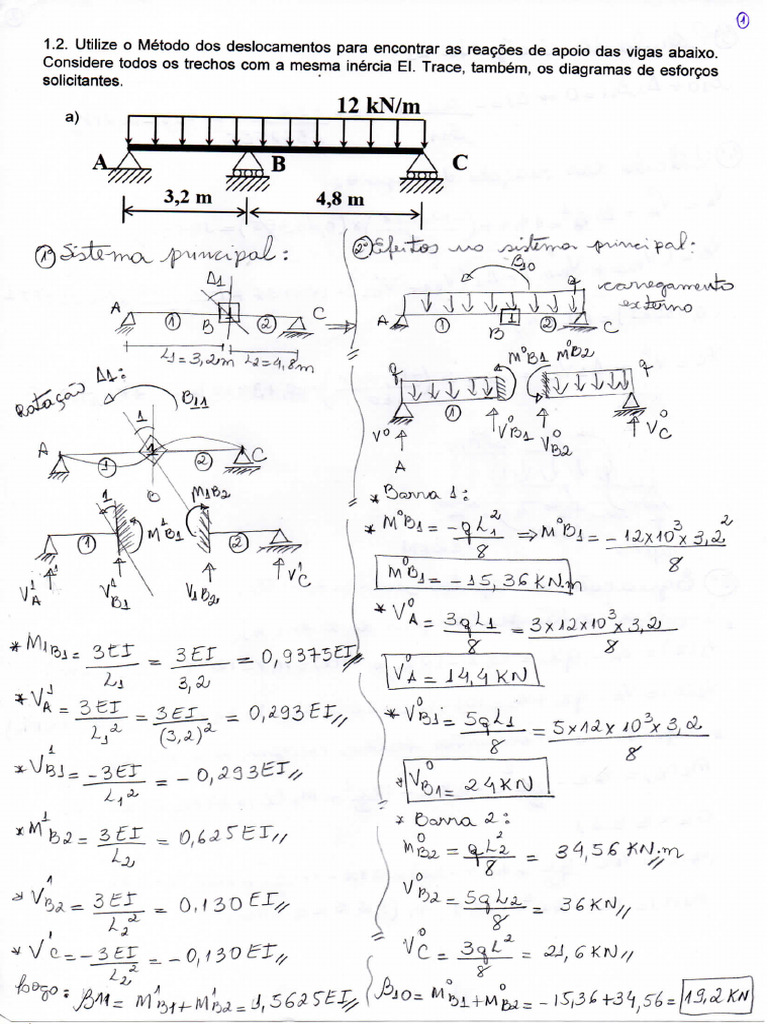 1
1.2. Utilize o Método dos deslocamentos para encontrar as reações de apoio das vigas abaixo.
Considere todos os trechos com a mesma inércia EI. Trace, também, os diagramas de esforços
solicitantes.
a)
12 kN/m
A B C
3,2 m 4,8 m
1º Sistema principal:
Δ1
A 1 B 2 C
L1=3,2m L2=4,8m
Rotação Δ1:
β11
1
A 1 1 2 C
B
1 M¹B1 M1B2
1 2
V¹A V¹B1 V1B2 V¹C
* M1B1 = 3EI/L1 = 3EI/3,2 = 0,9375EI//
* V¹A = 3EI/L1² = 3EI/(3,2)² = 0,293EI//
* V¹B1 = -3EI/L1² = -0,293EI//
* M¹B2 = 3EI/L2 = 0,625EI//
* V¹B2 = 3EI/L2² = 0,130EI//
* V¹C = -3EI/L2² = -0,130EI//
Logo: β11 = M¹B1 + M¹B2 = 1,5625EI//
2º Efeitos no sistema principal:
β10
q carregamento
externo
A 1 B 1 2 C
q M⁰B1 M⁰B2 q
1
V⁰A V⁰B1 V⁰B2 V⁰C
* Barra 1:
* M⁰B1 = -qL1²/8 ⇒ M⁰B1 = -12x10³x3,2²/8
M⁰B1 = -15,36KN.m
* V⁰A = 3qL1/8 = 3x12x10³x3,2/8
V⁰A = 14,4KN
* V⁰B1 = 5qL1/8 = 5x12x10³x3,2/8
* V⁰B1 = 24KN
* Barra 2:
M⁰B2 = qL2²/8 = 34,56KN.m
V⁰B2 = 5qL2/8 = 36KN//
V⁰C = 3qL²/8 = 21,6KN//
β10 = M⁰B1 + M⁰B2 = -15,36+34,56 = 19,2KN